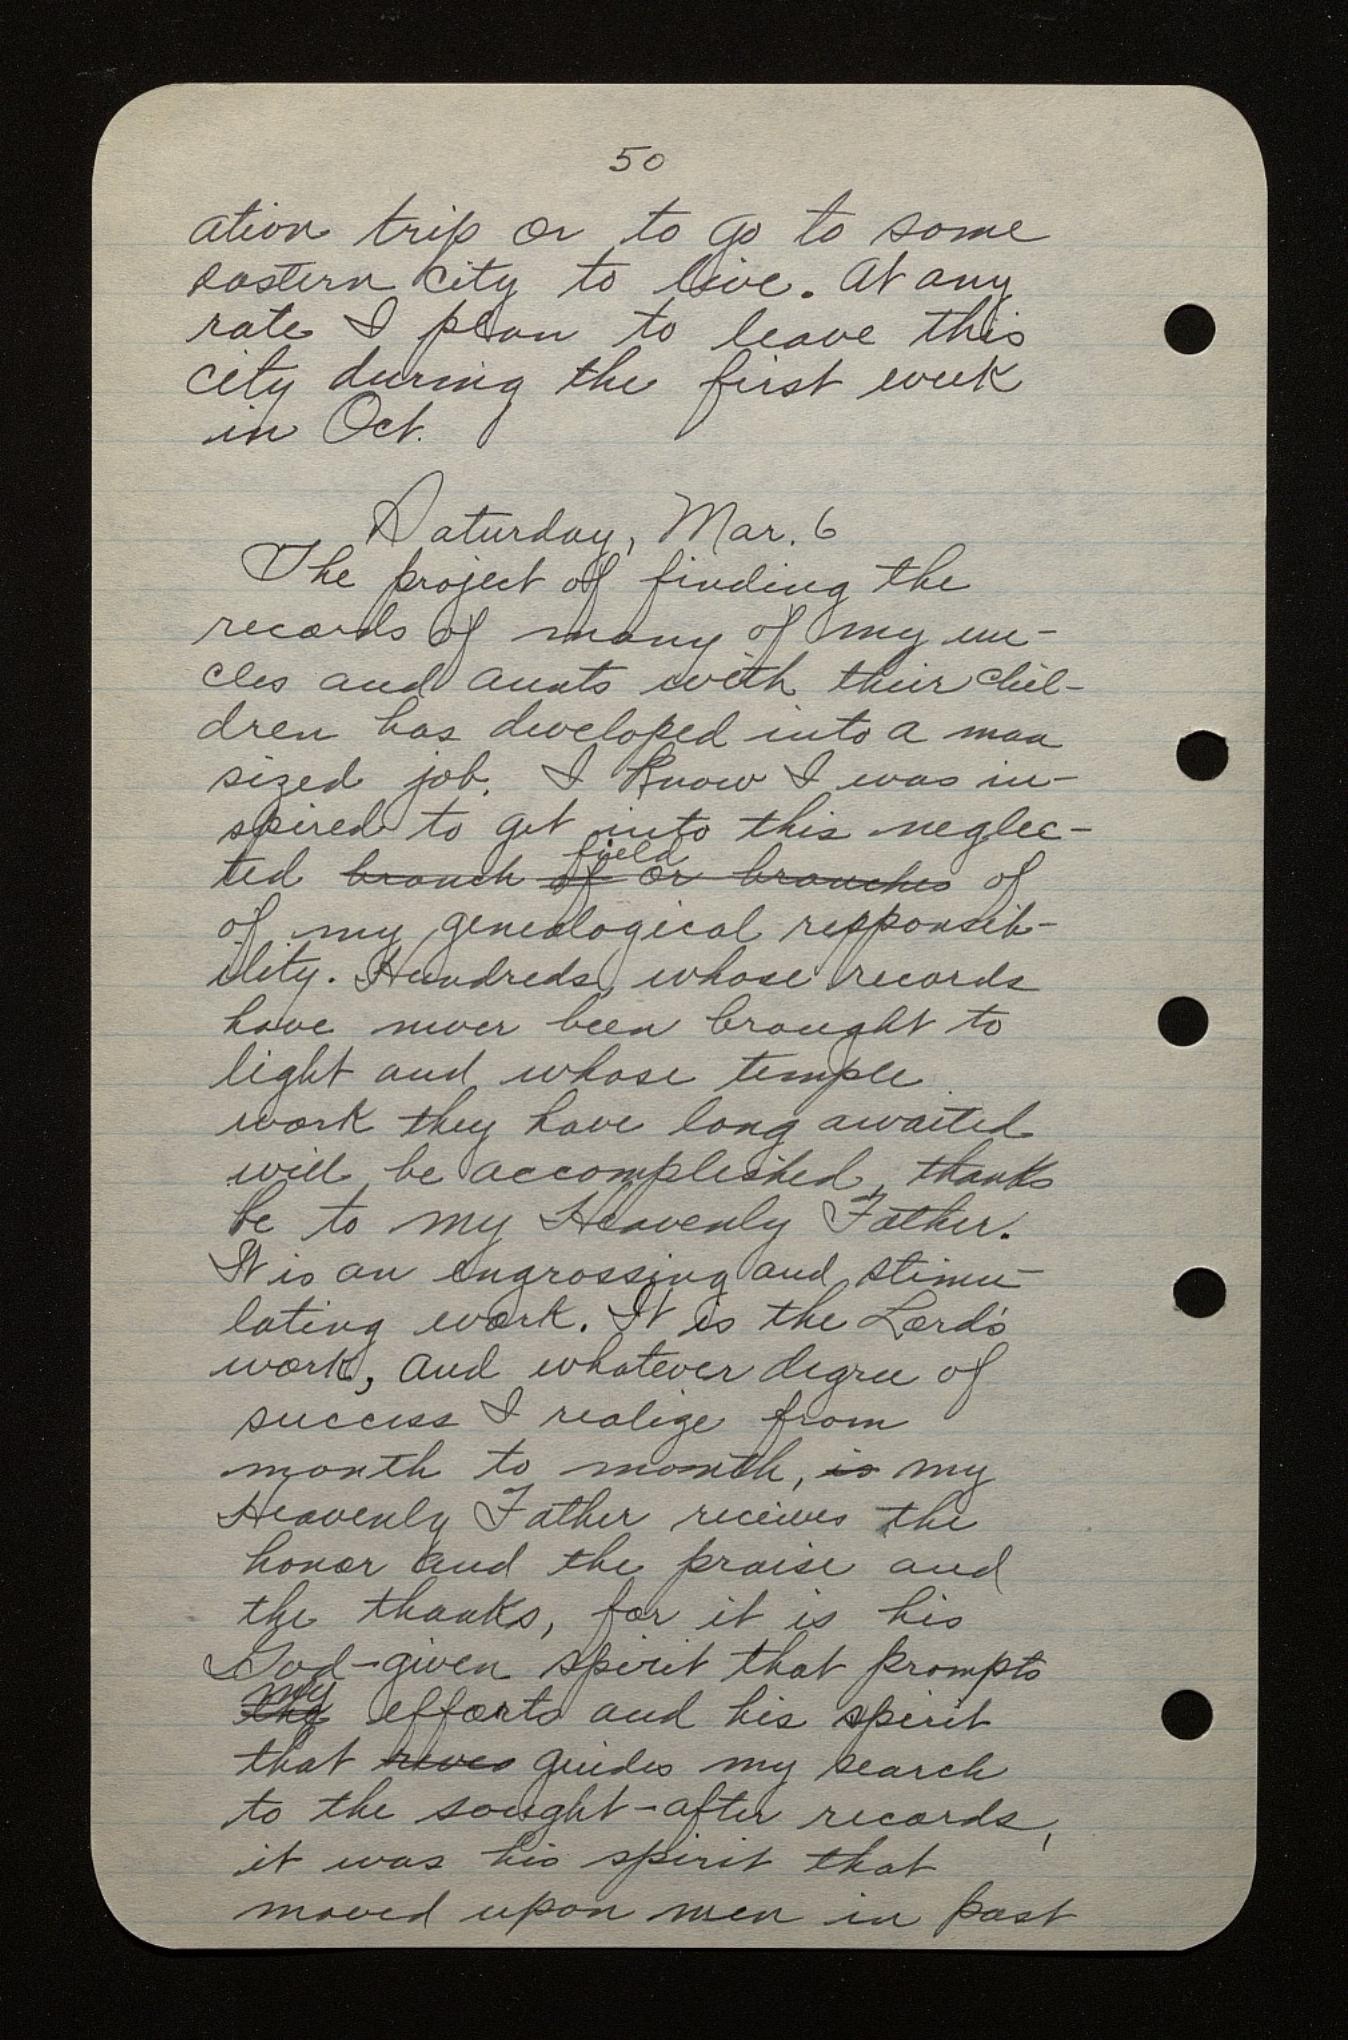 50
ation trip or to go to some
eastern city to live. At any
rate I plan to leave this
city during the first week
in Oct.
Saturday, Mar. 6
The project of finding the
records of many of my un-
cles and aunts with their chil-
dren has developed into a man
sized job. I know I was in-
spired to get into this neglec-
field
ted branch of or branches of
of my genealogical responsib-
ility. Hundreds, whose records
have never been brought to
light and whose temple
work they have long awaited
will be accomplished, thanks
be to my Heavenly Father.
It is an engrossing and stimu-
lating work. It is the Lord's
work, and whatever degree of
success I realize from
month to month, is my
Heavenly Father receives the
honor and the praise and
the thanks, for it is his
God-given spirit that prompts
my
the efforts and his spirit
that guides my search
to the sought-after records,
it was his spirit that
moved upon men in past